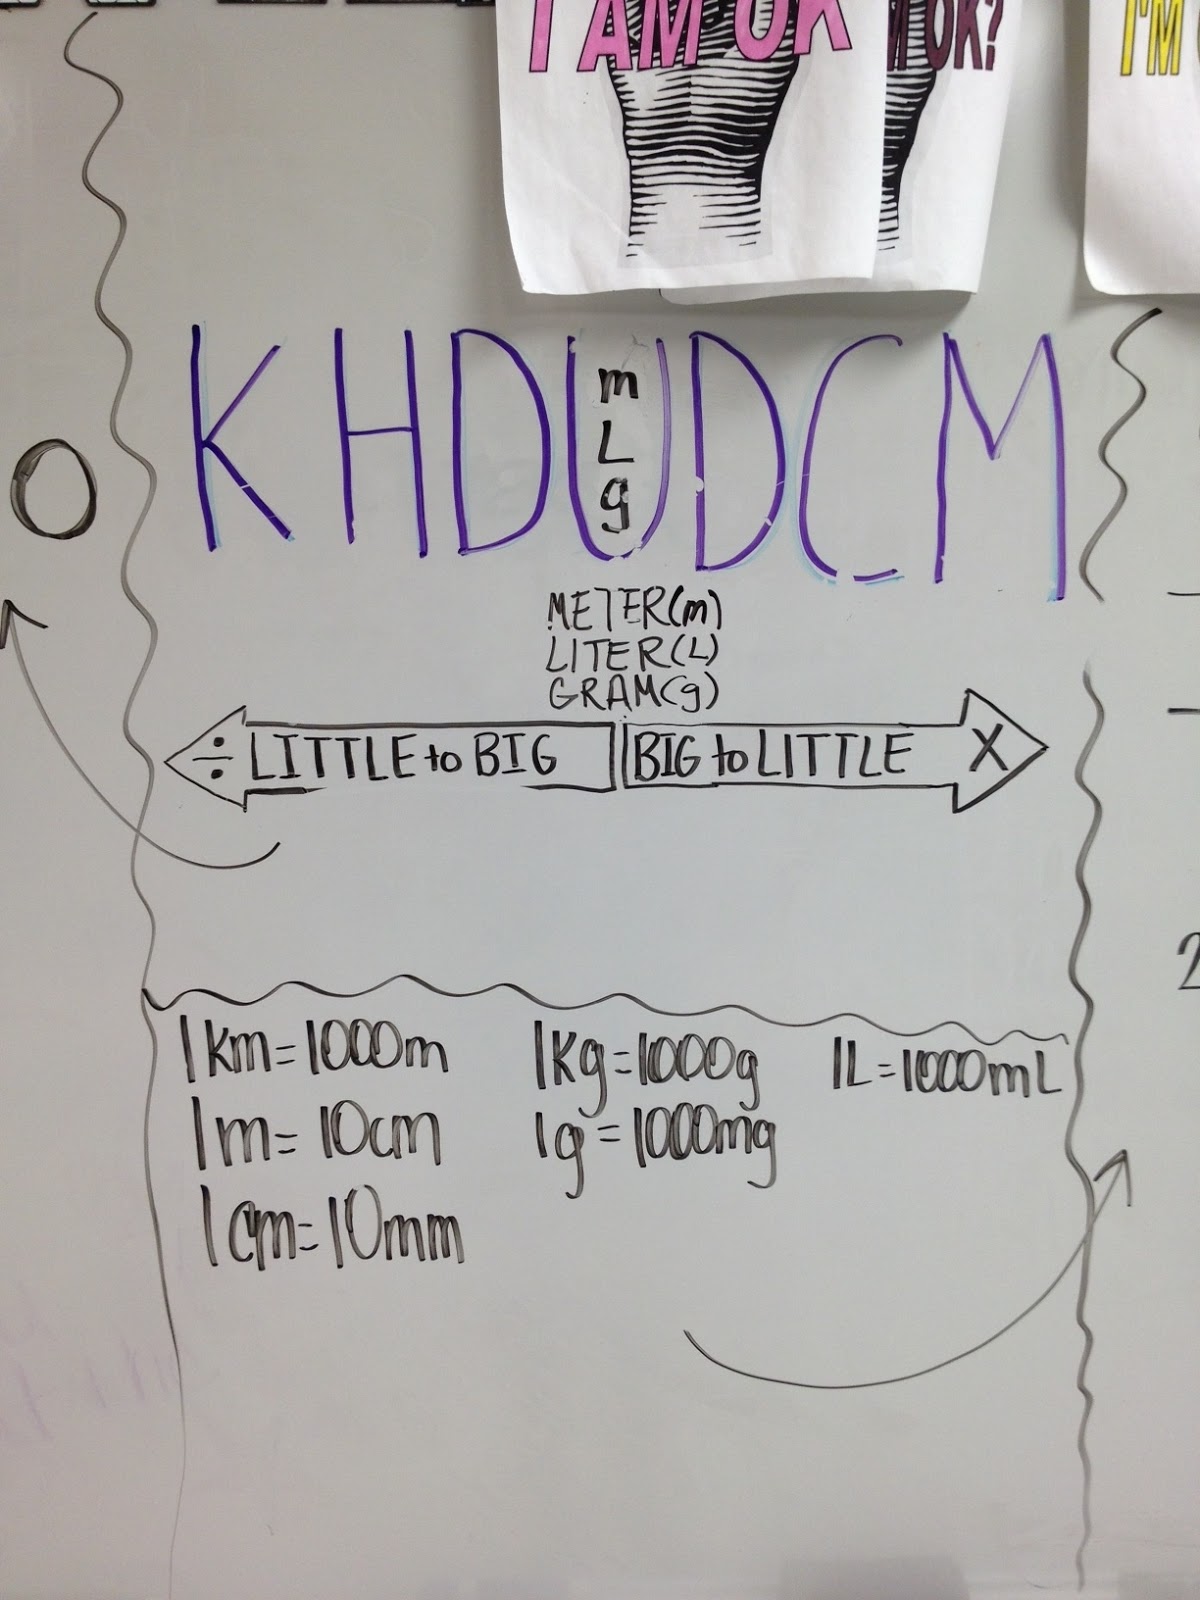 I AM OK
M OK?
I'M
KHDUDCM
m
L
g
METER(m)
LITER(L)
GRAM(g)
÷ LITTLE to BIG BIG to LITTLE X
1km=1000m 1kg=1000g 1L=1000mL
1m=10cm 1g=1000mg
1cm=10mm
2